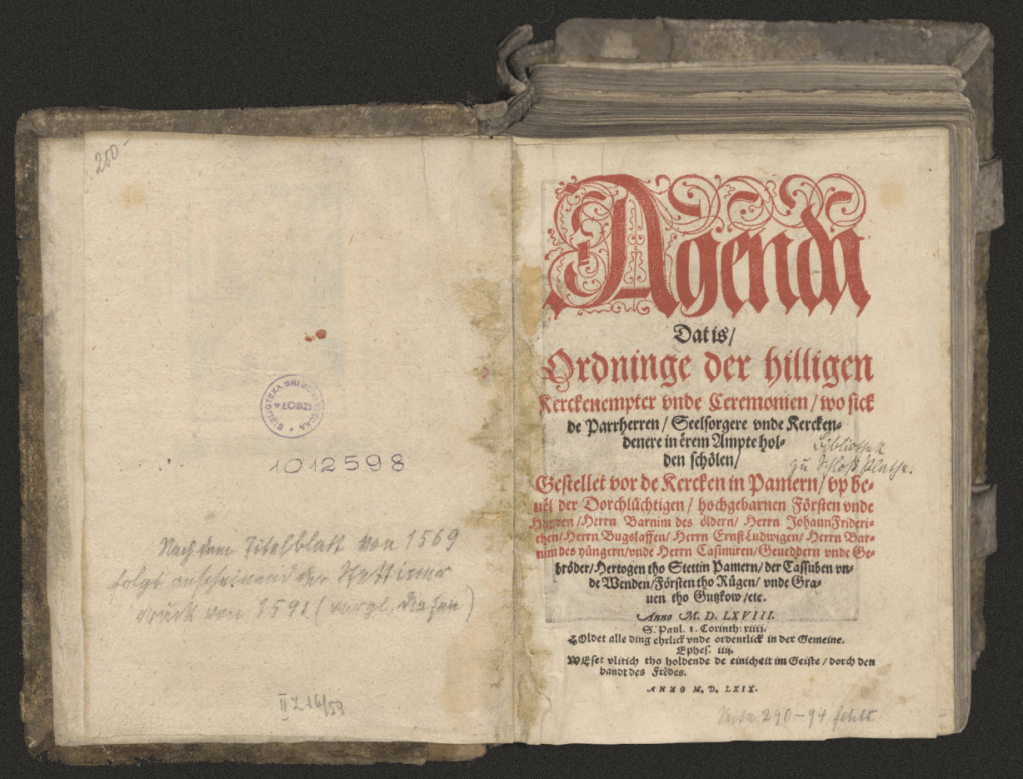 250.-
BIBLIOTEKA UNIWERSYTECKA
w ŁODZI
1012598
Nach dem Titelblatt von 1569
folgt anscheinend der Stettiner
druck von 1591 (vergl. )
II Z 16/59
Agenda
Dat is/
Ordninge der hilligen
Kerckenempter vnde Ceremonien/ wo sick
de Parrherren/ Seelsorgere vnde Kercken-
denere in erem Ampte hol-
den schölen/
Bibliothek
zu Schloß Plathe.
Gestellet vor de Kercken in Pamern/ vp be-
uel der Dorchlüchtigen/ hochgebarnen Försten vnde
Herren/Herrn Barnim des öldern/ Herrn JohannFrideri-
chen/Herrn Bugslaffen/ Herrn ErnstLudwigen/ Herrn Bar-
nim des yüngern/vnde Herrn Casimiren/Geueddern vnde Ge-
bröder/Hertogen tho Stettin Pamern/der Cassuben vn-
de Wenden/Försten tho Rügen/ vnde Gra-
uen tho Gutzkow/etc.
Anno M. D. LXVIII.
S. Paul. 1. Corinth: xiiij.
Oldet alle ding ehrlick vnde ordentlick in der Gemeine.
Ephes. iiij.
WEset vlitich tho holdende de einicheit im Geiste/dorch den
bandt des Fredes.
ANNO M. D. LXIX.
Seite 290-94 fehlt.